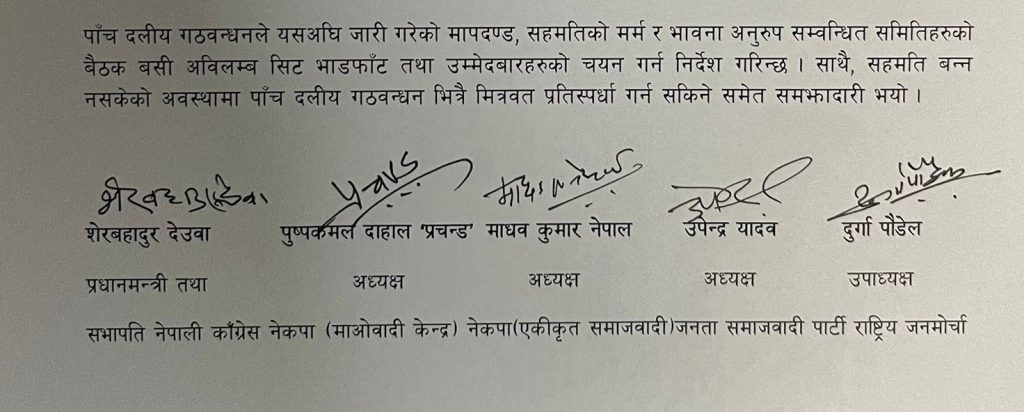 पाँच दलीय गठवन्धनले यसअघि जारी गरेको मापदण्ड, सहमतिको मर्म र भावना अनुरुप सम्वन्धित समितिहरुको
बैठक बसी अविलम्ब सिट भाडफाँट तथा उम्मेदबारहरुको चयन गर्न निर्देश गरिन्छ । साथै, सहमति बन्न
नसकेको अवस्थामा पाँच दलीय गठवन्धन भित्रै मित्रवत प्रतिस्पर्धा गर्न सकिने समेत समझादारी भयो ।
शेरबहादुर देउवा पुष्पकमल दाहाल ‘प्रचन्ड’ माधव कुमार नेपाल उपेन्द्र यादव दुर्गा पौडेल
प्रधानमन्त्री तथा अध्यक्ष अध्यक्ष अध्यक्ष उपाध्यक्ष
सभापति नेपाली काँग्रेस नेकपा (माओवादी केन्द्र) नेकपा(एकीकृत समाजवादी)जनता समाजवादी पार्टी राष्ट्रिय जनमोर्चा